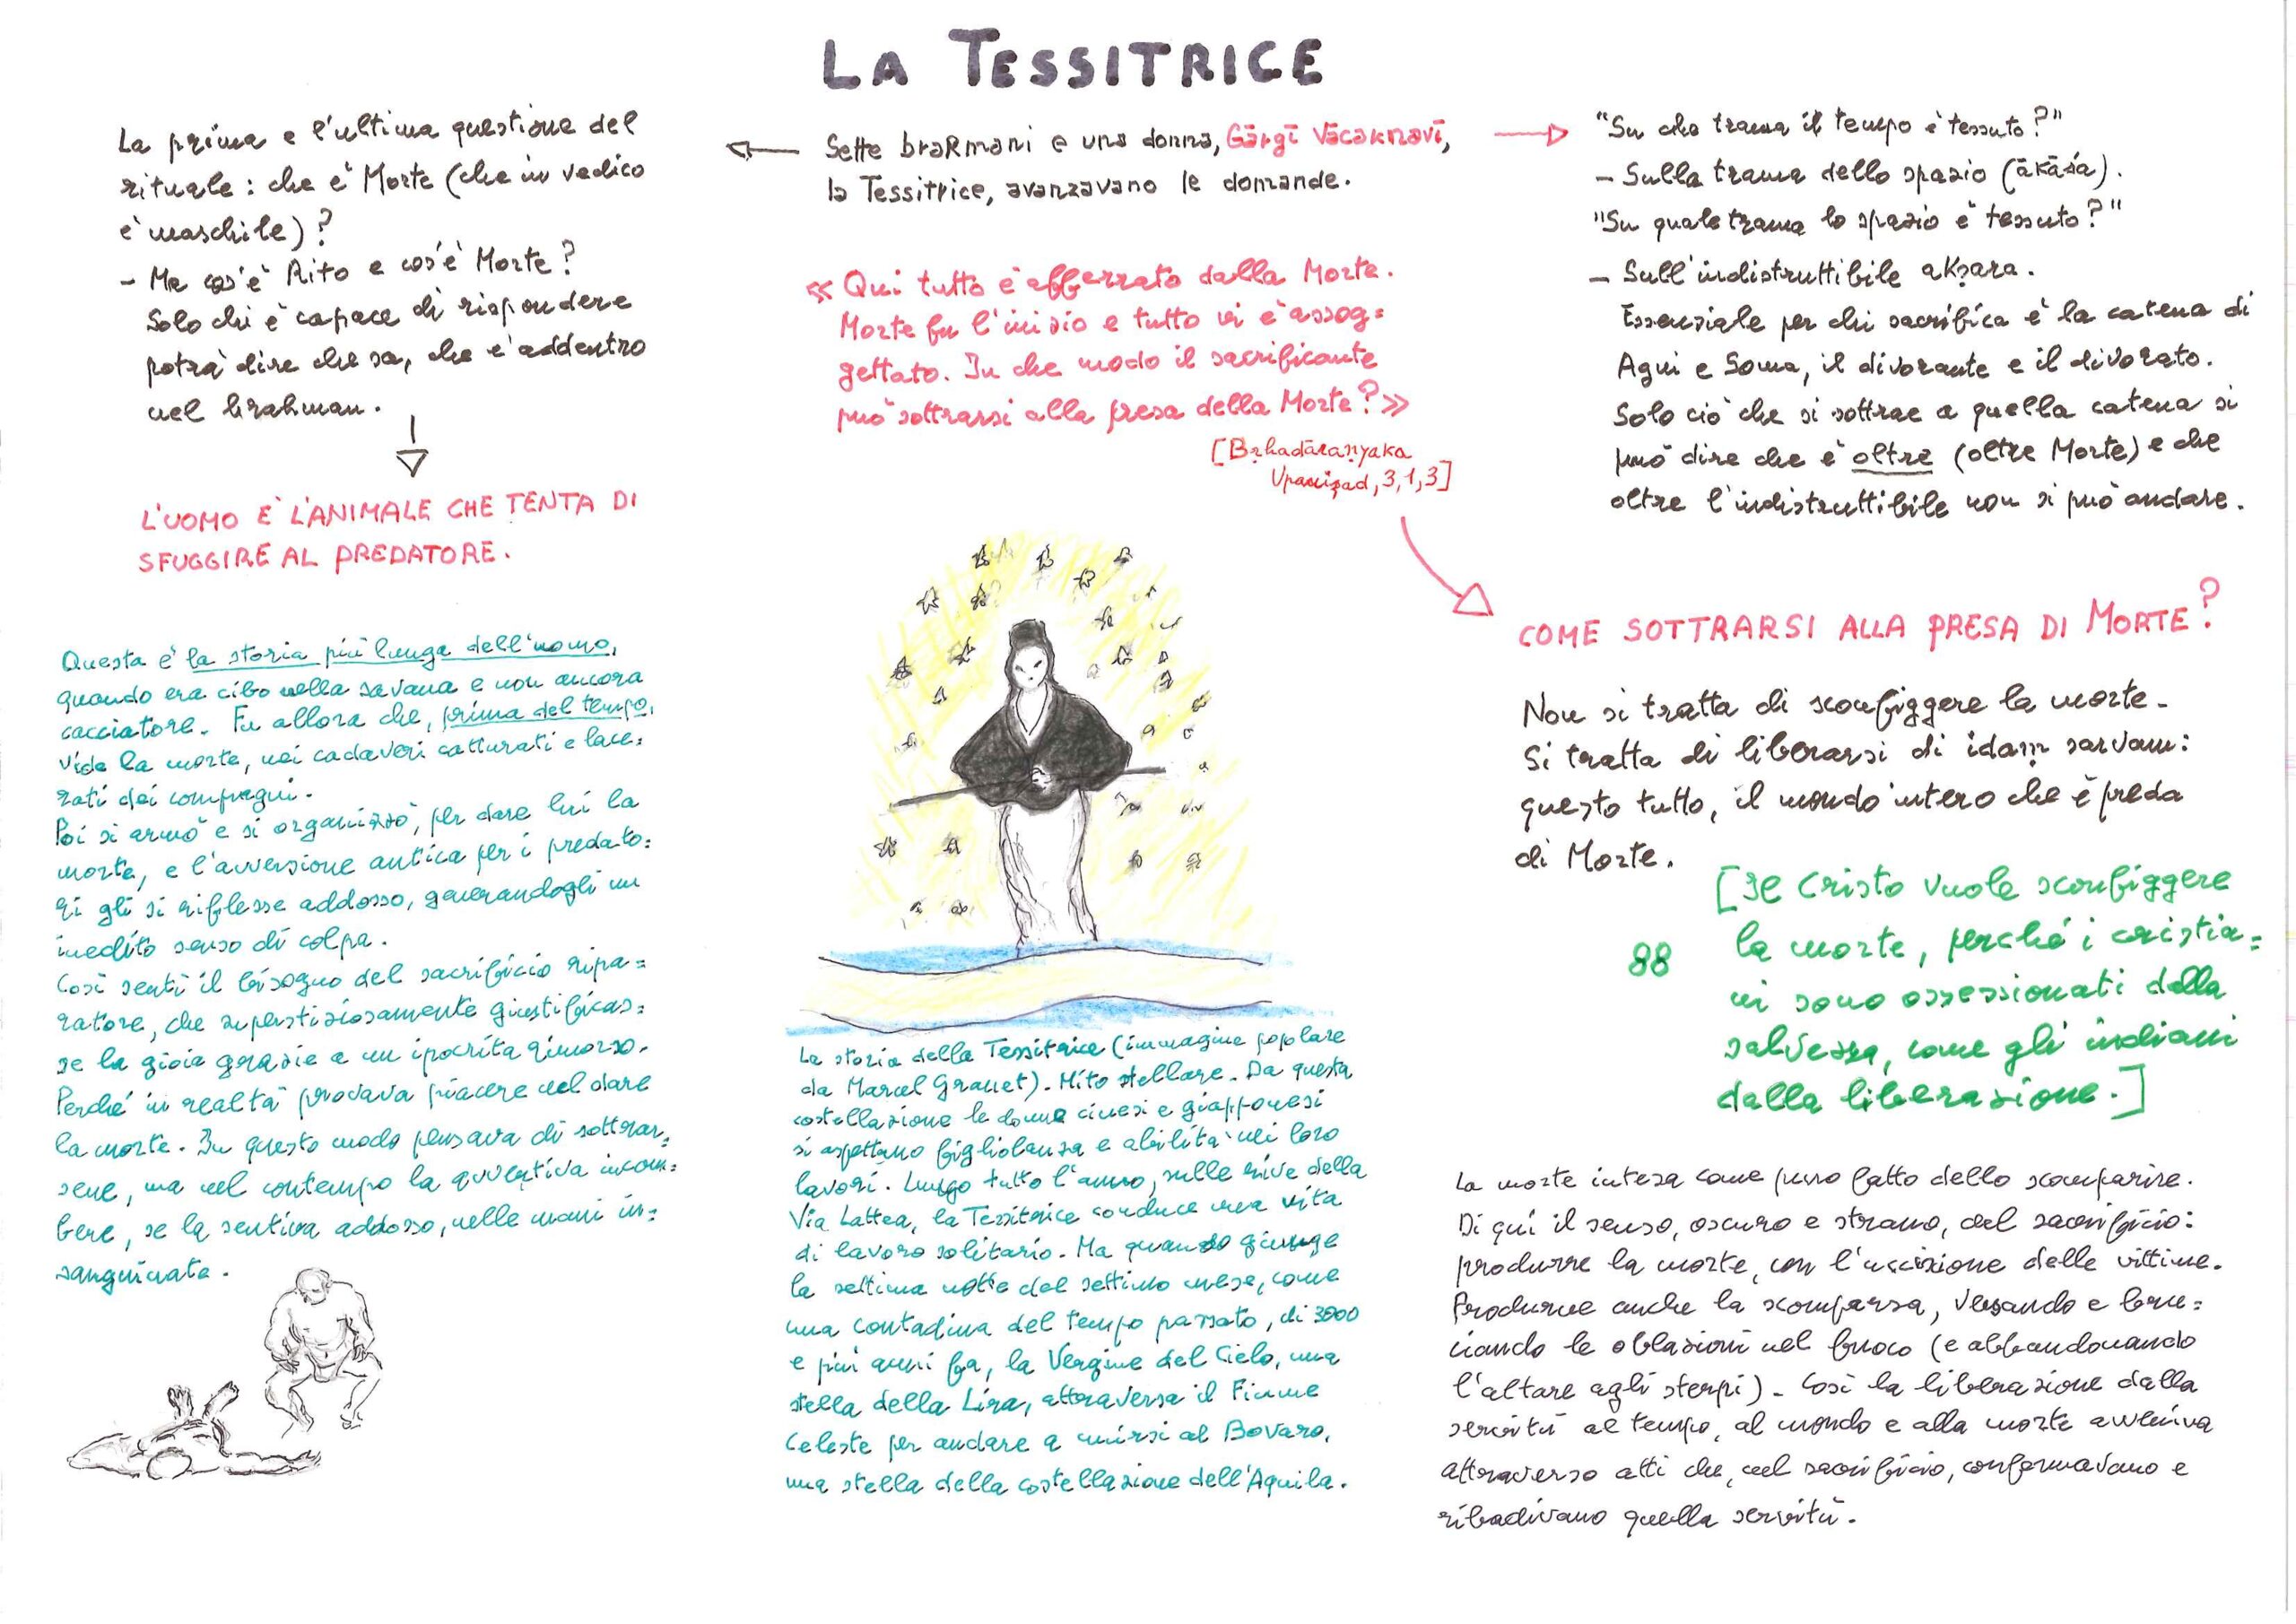 LA TESSITRICE
La prima e l'ultima questione del
rituale: che è Morte (che in vedico
è maschile)?
- Ma cos'è Rito e cos'è Morte?
Solo chi è capace di rispondere
potrà dire che sa, che è addentro
nel brahman.
L'UOMO È L'ANIMALE CHE TENTA DI
SFUGGIRE AL PREDATORE.
Questa è la storia più lunga dell'uomo,
quando era cibo nella savana e non ancora
cacciatore. Fu allora che, prima del tempo,
vide la morte, nei cadaveri catturati e lace=
rati dei compagni.
Poi si armò e si organizzò, per dare lui la
morte, e l'avversione antica per i predato=
ri gli si riflesse addosso, generandogli un
inedito senso di colpa.
Così sentì il bisogno del sacrificio ripa=
ratore, che superstiziosamente giustificas=
se la gioia grazie a un ipocrita rimorso.
Perché in realtà provava piacere nel dare
la morte. In questo modo pensava di sottrar=
sene, ma nel contempo la avvertiva incom=
bere, se la sentiva addosso, nelle mani in=
sanguinate.
Sette braRmani e una donna, Gārgī Vācaknavī,
la Tessitrice, avanzavano le domande.
« Qui tutto è afferrato dalla Morte.
Morte fu l'inizio e tutto vi è assog=
gettato. In che modo il sacrificante
può sottrarsi alla presa della Morte? »
[Bṛhadāraṇyaka
Upaniṣad, 3,1,3]
La storia della Tessitrice (immagine popolare
da Marcel Granet). Mito stellare. Da questa
costellazione le donne cinesi e giapponesi
si aspettano figliolanza e abilità nei loro
lavori. Lungo tutto l'anno, sulle rive della
Via Lattea, la Tessitrice conduce una vita
di lavoro solitario. Ma quando giunge
la settima notte del settimo mese, come
una contadina del tempo passato, di 3000
e più anni fa, la Vergine del Cielo, una
stella della Lira, attraversa il Fiume
Celeste per andare a unirsi al Bovaro,
una stella della costellazione dell'Aquila.
"Su che trama il tempo è tessuto?"
- Sulla trama dello spazio (ākāśa).
"Su quale trama lo spazio è tessuto?"
- Sull'indistruttibile akṣara.
Essenziale per chi sacrifica è la catena di
Agni e Soma, il divorante e il divorato.
Solo ciò che si sottrae a quella catena si
può dire che è oltre (oltre Morte) e che
oltre l'indistruttibile non si può andare.
COME SOTTRARSI ALLA PRESA DI MORTE?
Non si tratta di sconfiggere la morte.
Si tratta di liberarsi di idaṃ sarvam:
questo tutto, il mondo intero che è preda
di Morte.
[Il Cristo vuole sconfiggere
la morte, perché i cristia=
ni sono ossessionati dalla
salvezza, come gli indiani
dalla liberazione.]
88
La morte intesa come puro fatto dello scomparire.
Di qui il senso, oscuro e strano, del sacrificio:
produrre la morte, con l'uccisione delle vittime.
Produrre anche la scomparsa, versando e bru=
ciando le oblazioni nel fuoco (e abbandonando
l'altare agli sterpi). Così la liberazione dalla
servitù al tempo, al mondo e alla morte avveniva
attraverso atti che, nel sacrificio, confermavano e
ribadivano quella servitù.